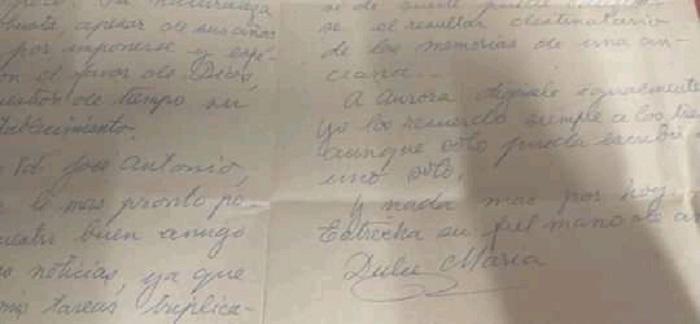 naturaleza
apesar de sus años
por imponerse y espe-
on el favor de Dios,
cuestión de tiempo su
tablecimiento.
Vd. José Antonio,
lo mas pronto po
buen amigo
noticias, ya que
mis tareas triplica-
se el resultar destinatario
de las memorias de una an-
ciana...
A Aurora dígale igualmente
yo los recuerdo siempre a los tres
aunque sólo pueda escribir
uno sólo.
Y nada mas por hoy.
Estrecha su fiel mano de a
Dulce María